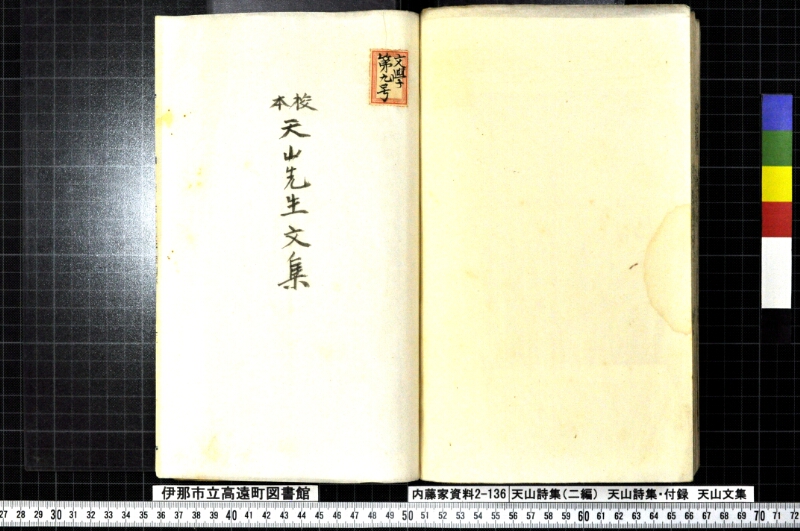 文學
第九号
校本
天山先生文集
伊那市立高遠町図書館
内藤家資料2-136 天山詩集(二編) 天山詩集・付録 天山文集
27 28 29 30 31 32 33 34 35 36 37 38 39 40 41 42 43 44 45 46 47 48 49 50 51 52 53 54 55 56 57 58 59 60 61 62 63 64 65 66 67 68 69 70 71 72